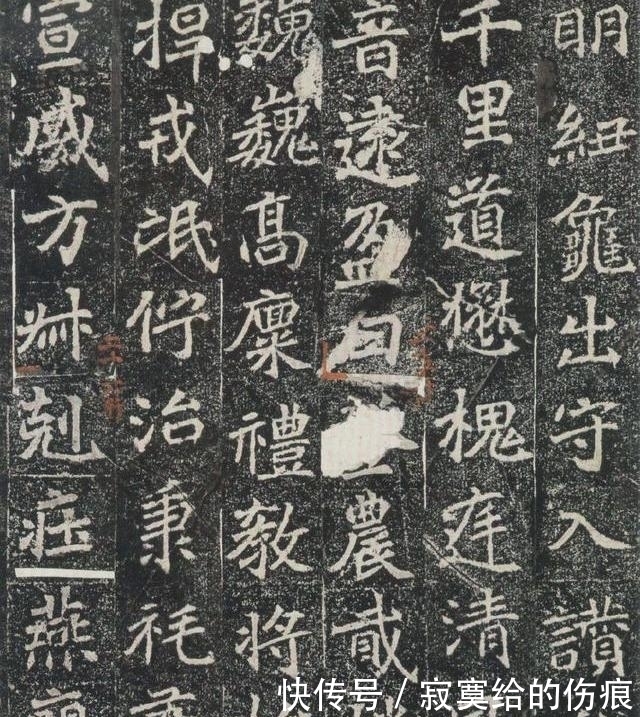 朙紐龜出守入讃
千里道懋槐庭清
音遠盈農咸
巍巍髙禮教將
捍戎氓佇治秉旄
宣威方叔剋莊燕
快传号 / 寂寞给的伤痕